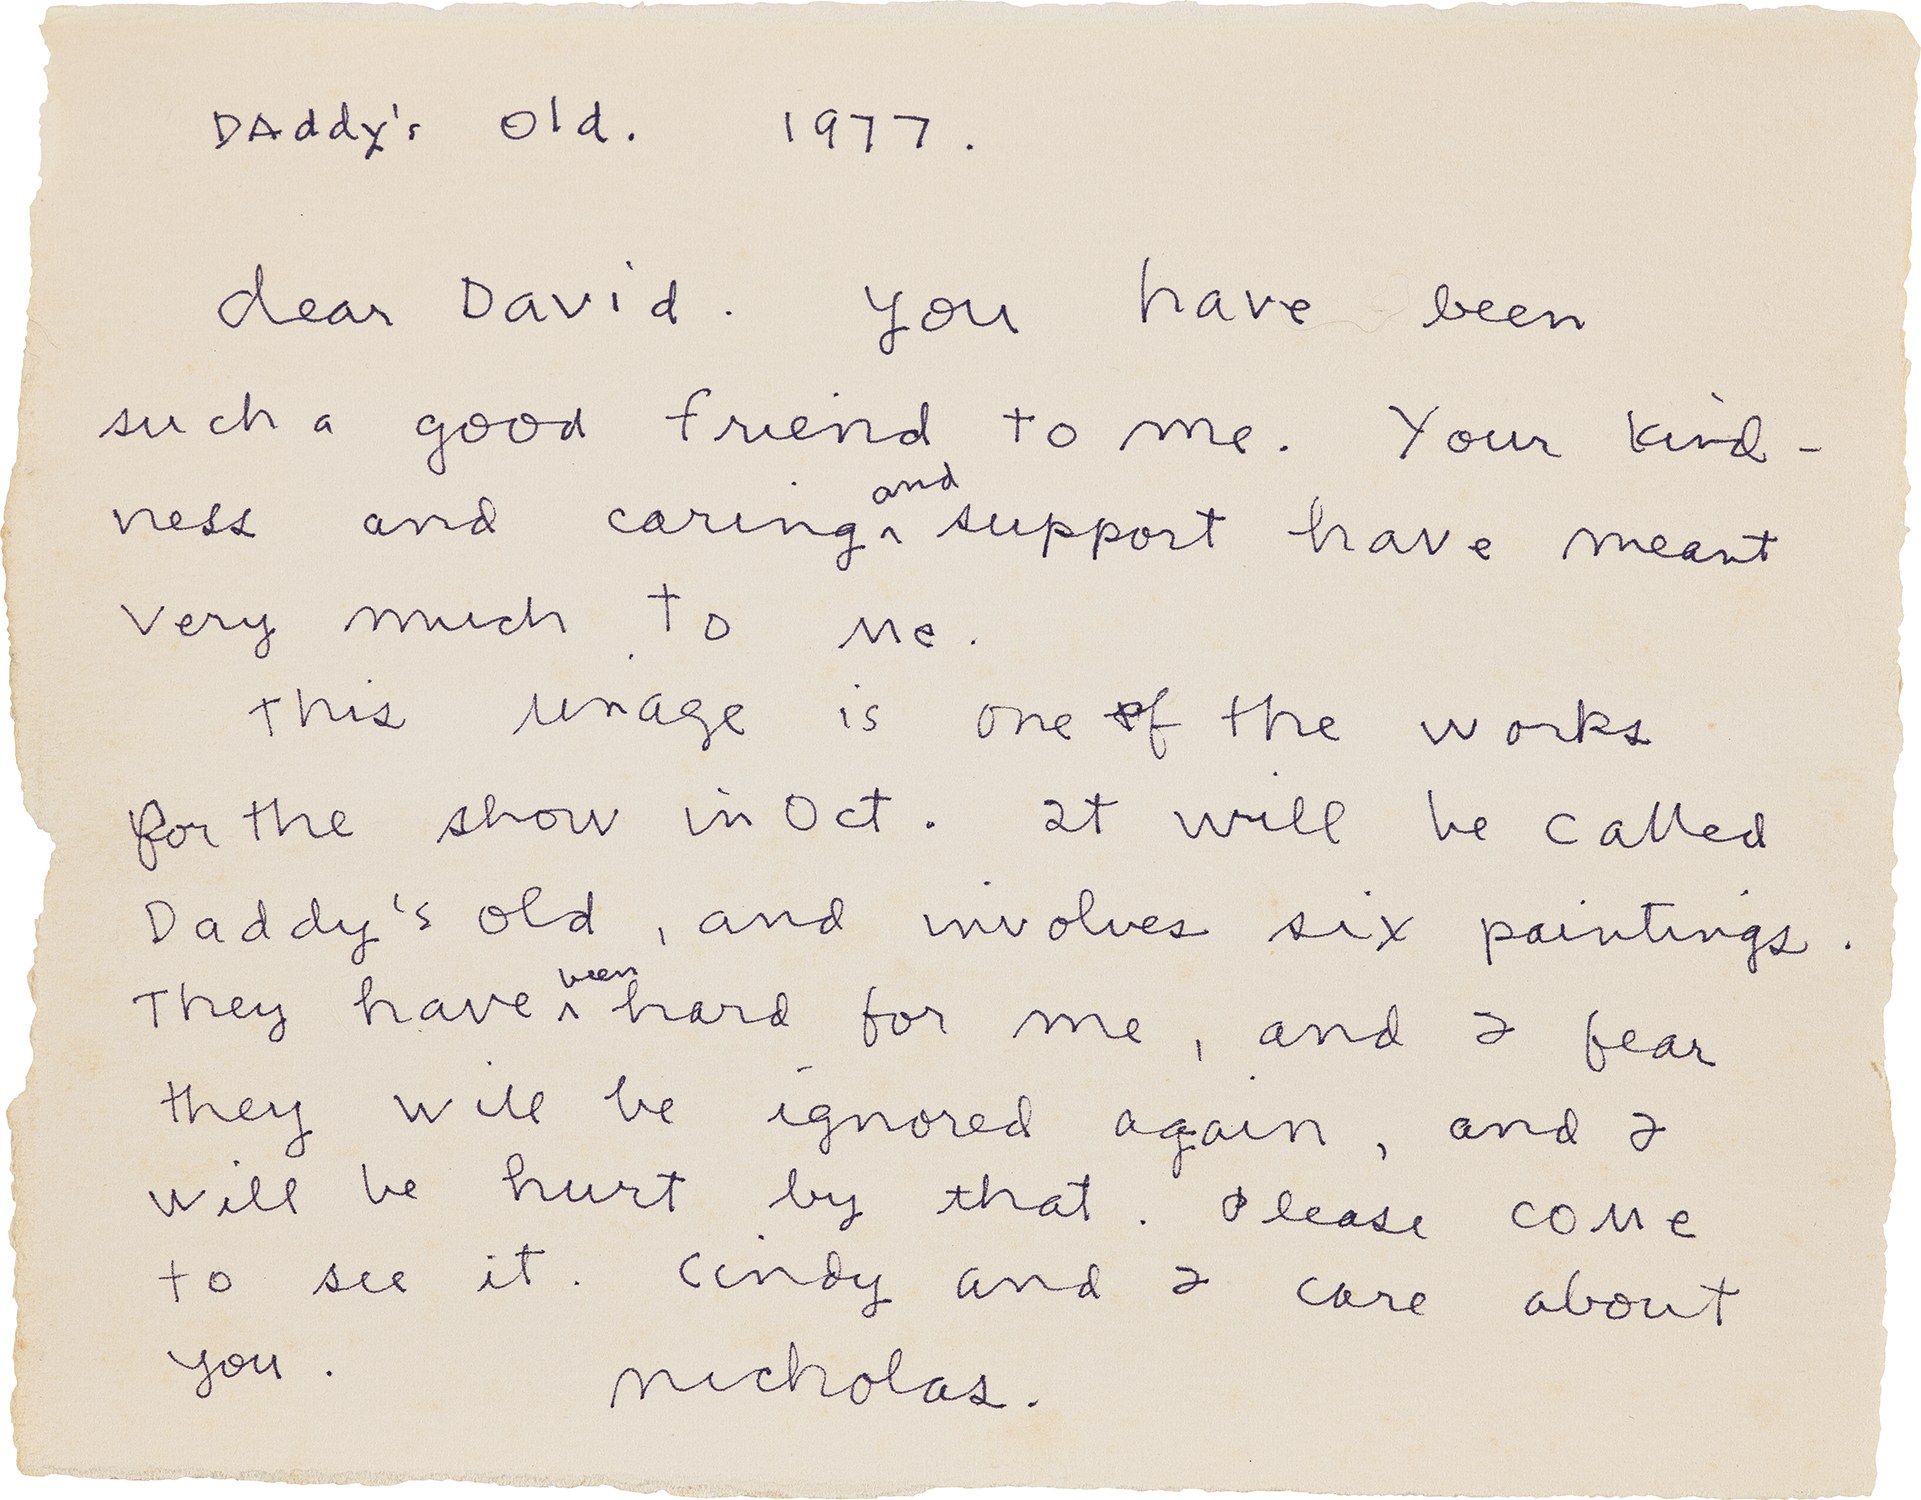 DAddy's Old. 1977.
dear David. You have been
such a good friend to me. Your kind-
ness and caring and support have meant
very much to me.
This image is one of the works
for the show in Oct. It will be called
Daddy's old, and involves six paintings.
They have been hard for me, and I fear
they will be ignored again, and I
will be hurt by that. Please come
to see it. Cindy and I care about
you. nicholas.